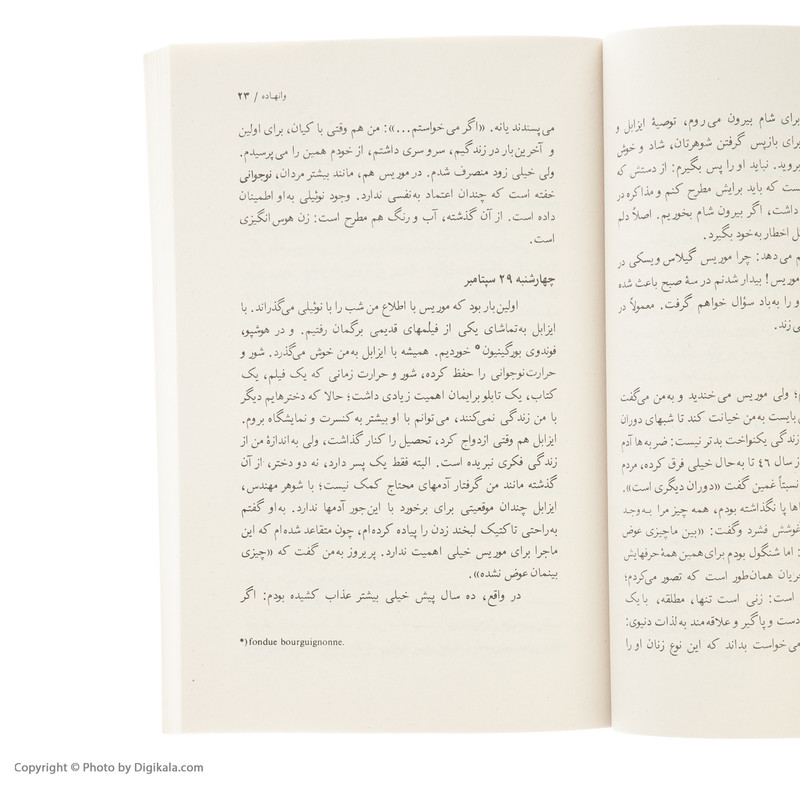 برای شام بیرون می‌روم، توصیهٔ ایزابل و
برای بازپس گرفتن شوهرتان، شاد و خوش
بروید. نباید او را پس بگیرم: از دستش که
ست که باید برایش مطرح کنم و مذاکره در
داشت، اگر بیرون شام بخوریم. اصلاً دلم
ل اخطار به‌خود بگیرد.
م می‌دهد: چرا موریس گیلاس ویسکی در
موریس! بیدار شدنم در سهٔ صبح باعث شده
و را به‌باد سؤال خواهم گرفت. معمولاً در
ی‌زند.
م؛ ولی موریس می‌خندید و به‌من می‌گفت
بایست به‌من خیانت کند تا شبهای دوران
زندگی یکنواخت بدتر نیست: ضربه‌ها آدم
ز سال ٤٦ تا به‌حال خیلی فرق کرده، مردم
نسبتاً غمین گفت «دوران دیگری است».
اها پا نگذاشته بودم، همه چیز مرا به‌وجد
غوشش فشرد و گفت: «بین ما چیزی عوض
: اما شنگول بودم برای همین همهٔ حرفهایش
جریان همان‌طور است که تصور می‌کردم؛
است: زنی است تنها، مطلقه، با یک
دست و پاگیر و علاقه‌مند به لذات دنیوی:
می‌خواست بداند که این نوع زنان او را
وانهاده / ۲۳
می‌پسندند یا نه. «اگر می‌خواستم...»: من هم وقتی با کیان، برای اولین
و آخرین‌بار در زندگیم، سر و سری داشتم، از خودم همین را می‌پرسیدم.
ولی خیلی زود منصرف شدم. در موریس هم، مانند بیشتر مردان، نوجوانی
خفته است که چندان اعتماد به‌نفسی ندارد. وجود نوئیلی به‌او اطمینان
داده است. از آن گذشته، آب و رنگ هم مطرح است: زن هوس‌انگیزی
است.
چهارشنبه ۲۹ سپتامبر
اولین‌بار بود که موریس با اطلاع من شب را با نوئیلی می‌گذراند. با
ایزابل به‌تماشای یکی از فیلمهای قدیمی برگمان رفتیم. و در هوشپو،
فوندوی بورگینیون* خوردیم. همیشه با ایزابل به‌من خوش می‌گذرد. شور و
حرارت نوجوانی را حفظ کرده، شور و حرارت زمانی که یک فیلم، یک
کتاب، یک تابلو برایمان اهمیت زیادی داشت؛ حالا که دخترهایم دیگر
با من زندگی نمی‌کنند، می‌توانم با او بیشتر به‌کنسرت و نمایشگاه بروم.
ایزابل هم وقتی ازدواج کرد، تحصیل را کنار گذاشت، ولی به‌اندازهٔ من از
زندگی فکری نبریده است. البته فقط یک پسر دارد، نه دو دختر، از آن
گذشته مانند من گرفتار آدمهای محتاج کمک نیست؛ با شوهر مهندس،
ایزابل چندان موقعیتی برای برخورد با این‌جور آدمها ندارد. به‌او گفتم
به‌راحتی تاکتیک لبخند زدن را پیاده کرده‌ام، چون متقاعد شده‌ام که این
ماجرا برای موریس خیلی اهمیت ندارد. پریروز به‌من گفت که «چیزی
بینمان عوض نشده».
در واقع، ده سال پیش خیلی بیشتر عذاب کشیده بودم: اگر
*) fondue bourguignonne.
Copyright © Photo by Digikala.com